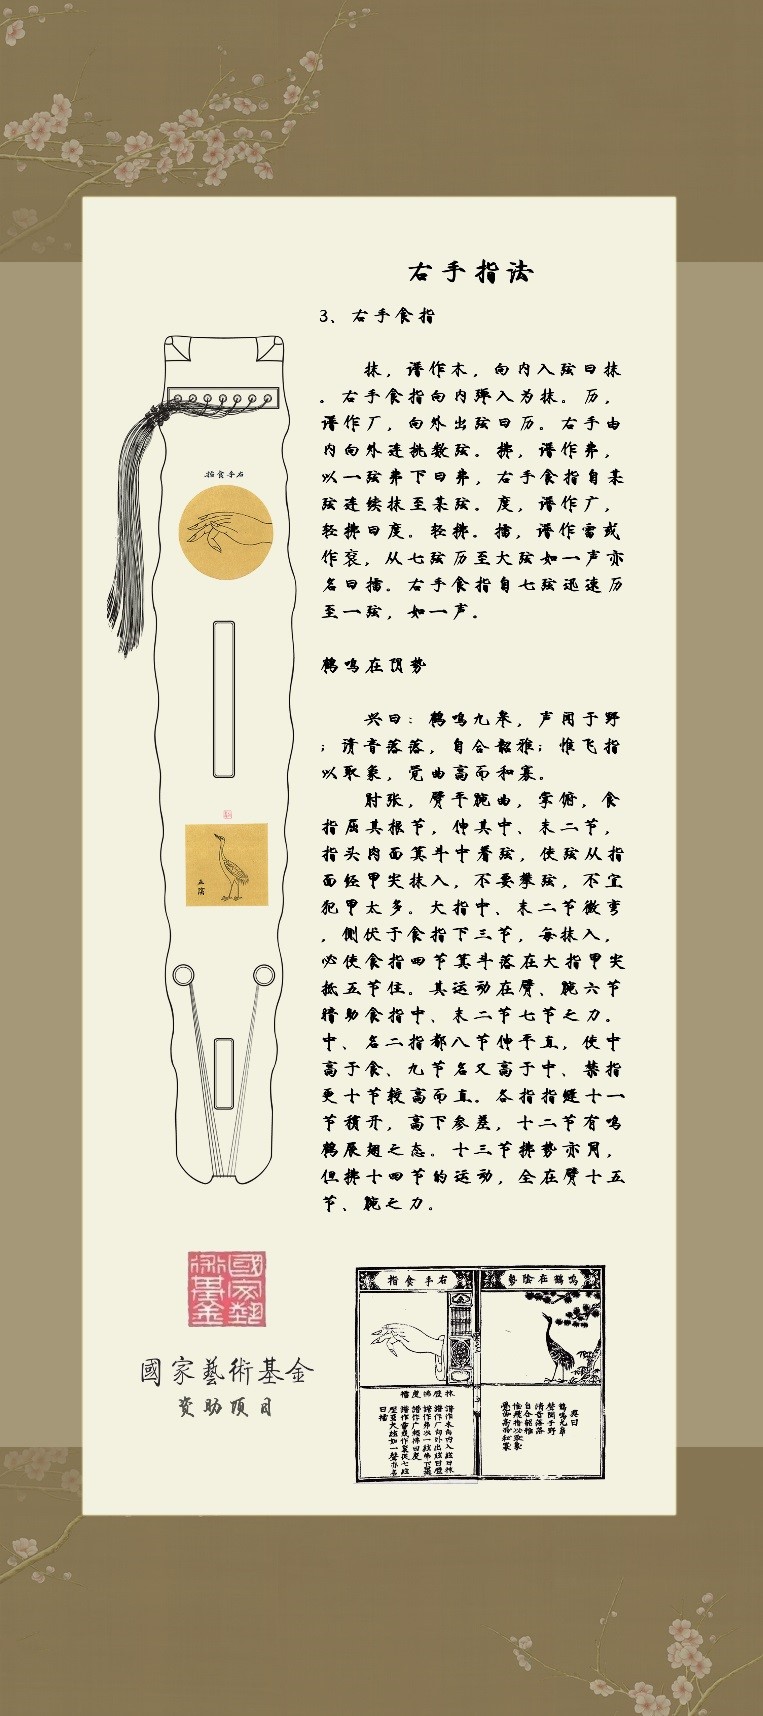 右手指法
3、右手食指
抹，谱作木，向内入弦曰抹
。右手食指向内弹入为抹。历，
谱作厂，向外出弦曰历。右手由
内向外连挑数弦。拂，谱作弗，
以一弦弗下曰弗，右手食指自某
弦连续抹至某弦。度，谱作广，
轻拂曰度。轻拂。擂，谱作雷或
作衮，从七弦历至大弦如一声亦
名曰擂。右手食指自七弦迅速历
至一弦，如一声。
鹤鸣在阴势
兴曰：鹤鸣九皋，声闻于野
；清音落落，自合韶雅；惟飞指
以取象，觉曲高而和寡。
肘张，臂平腕曲，掌俯，食
指屈其根节，伸其中、末二节，
指头肉面箕斗中着弦，使弦从指
面经甲尖抹入，不要攀弦，不宜
犯甲太多。大指中、末二节微弯
，侧伏于食指下三节，每抹入，
必使食指四节箕斗落在大指甲尖
抵五节住。其运动在臂、腕六节
暗助食指中、末二节七节之力。
中、名二指都八节伸平直，使中
高于食、九节名又高于中、禁指
更十节较高而直。各指指缝十一
节稍开，高下参差，十二节有鸣
鹤展翅之态。十三节拂势亦同，
但拂十四节的运动，全在臂十五
节、腕之力。
指食手右
國家藝術基金
國家藝術基金
资助项目
指食手右
勢陰在鶴鳴
擂度沸歷抹
譜作木向内入絃曰抹
譜作厂向外出絃曰歷
譜作弗以一絃弗下曰弗
譜作广輕拂曰度
譜作雷或作衮從七絃
歷至大絃如一聲亦名
曰擂
興曰
鶴鳴九皋
聲聞于野
清音落落
自合韶雅
惟飛指以取象
覺曲高而和寡